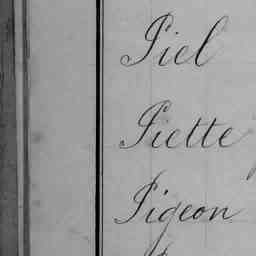 Piel
Piette
Pigeon